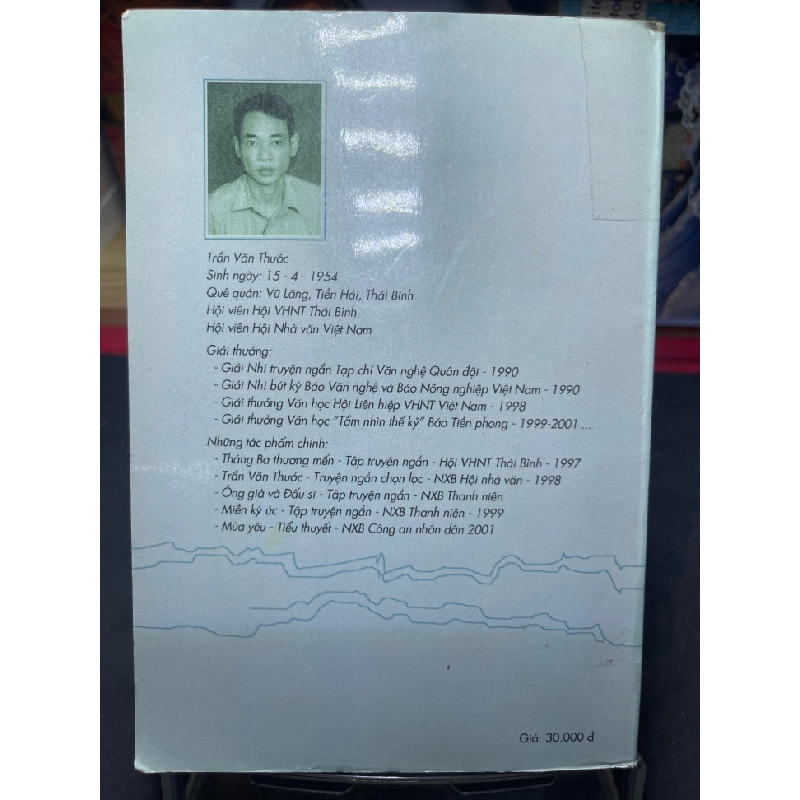 Trần Văn Thước
Sinh ngày: 15 - 4 - 1954
Quê quán: Vũ Lăng, Tiền Hải, Thái Bình
Hội viên Hội VHNT Thái Bình
Hội viên Hội Nhà văn Việt Nam
Giải thưởng:
- Giải Nhì truyện ngắn Tạp chí Văn nghệ Quân đội - 1990
- Giải Nhì bút ký Báo Văn nghệ và Báo Nông nghiệp Việt Nam - 1990
- Giải thưởng Văn học Hội Liên hiệp VHNT Việt Nam - 1998
- Giải thưởng Văn học "Tầm nhìn thế kỷ" Báo Tiền phong - 1999-2001 ...
Những tác phẩm chính:
- Tháng Ba thương mến - Tập truyện ngắn - Hội VHNT Thái Bình - 1997
- Trần Văn Thước - Truyện ngắn chọn lọc - NXB Hội nhà văn - 1998
- Ông già và Đấu sĩ - Tập truyện ngắn - NXB Thanh niên
- Miền ký ức - Tập truyện ngắn - NXB Thanh niên - 1999
- Mùa yêu - Tiểu thuyết - NXB Công an nhân dân 2001
Giá: 30.000 đ